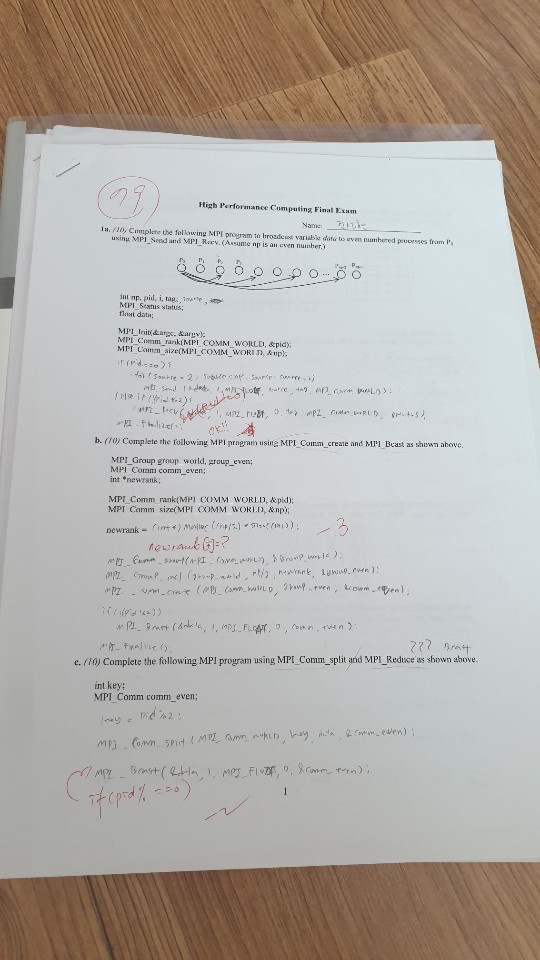 99
High Performance Computing Final Exam
Name:
1a. (10) Complete the following MPI program to broadcast variable data to even numbered processes from P0
using MPI_Send and MPI_Recv. (Assume np is an even number.)
P0 P1 P2 P3 ...
int np, pid, i, tag, source,
MPI_Status status;
float data;
MPI_Init(&argc, &argv);
MPI_Comm_rank(MPI_COMM_WORLD, &pid);
MPI_Comm_size(MPI_COMM_WORLD, &np);
if (pid==0) {
for (source = 2; source < np; source
MPI_Send ( 1, MPI_FLOAT, source, tag, MPI_COMM_WORLD);
} else if (!(pid%2)) {
MPI_Recv( 1, MPI_FLOAT, 0, tag, MPI_COMM_WORLD,
MPI_Finalize();
OK!!
b. (10) Complete the following MPI program using MPI_Comm_create and MPI_Bcast as shown above.
MPI_Group group_world, group_even;
MPI_Comm comm_even;
int *newrank;
MPI_Comm_rank(MPI_COMM_WORLD, &pid);
MPI_Comm_size(MPI_COMM_WORLD, &np);
newrank = (int*) malloc ((np/2) * sizeof(int));
-3
newrank[i]=?
MPI_Comm_group(MPI_COMM_WORLD, &group_world);
MPI_Group_incl (group_world, np/2, newrank, &group_even);
MPI_Comm_create (MPI_COMM_WORLD, group_even, &comm_even);
if (!(pid%2))
MPI_Bcast (&data, 1, MPI_FLOAT, 0, comm_even);
MPI_Finalize();
??? Bcast
c. (10) Complete the following MPI program using MPI_Comm_split and MPI_Reduce as shown above.
int key;
MPI_Comm comm_even;
key = pid%2;
MPI_Comm_split (MPI_COMM_WORLD, key, data, &comm_even);
MPI_Bcast (&data, 1, MPI_FLOAT, 0, &comm_even);
if (pid% ==0)
1